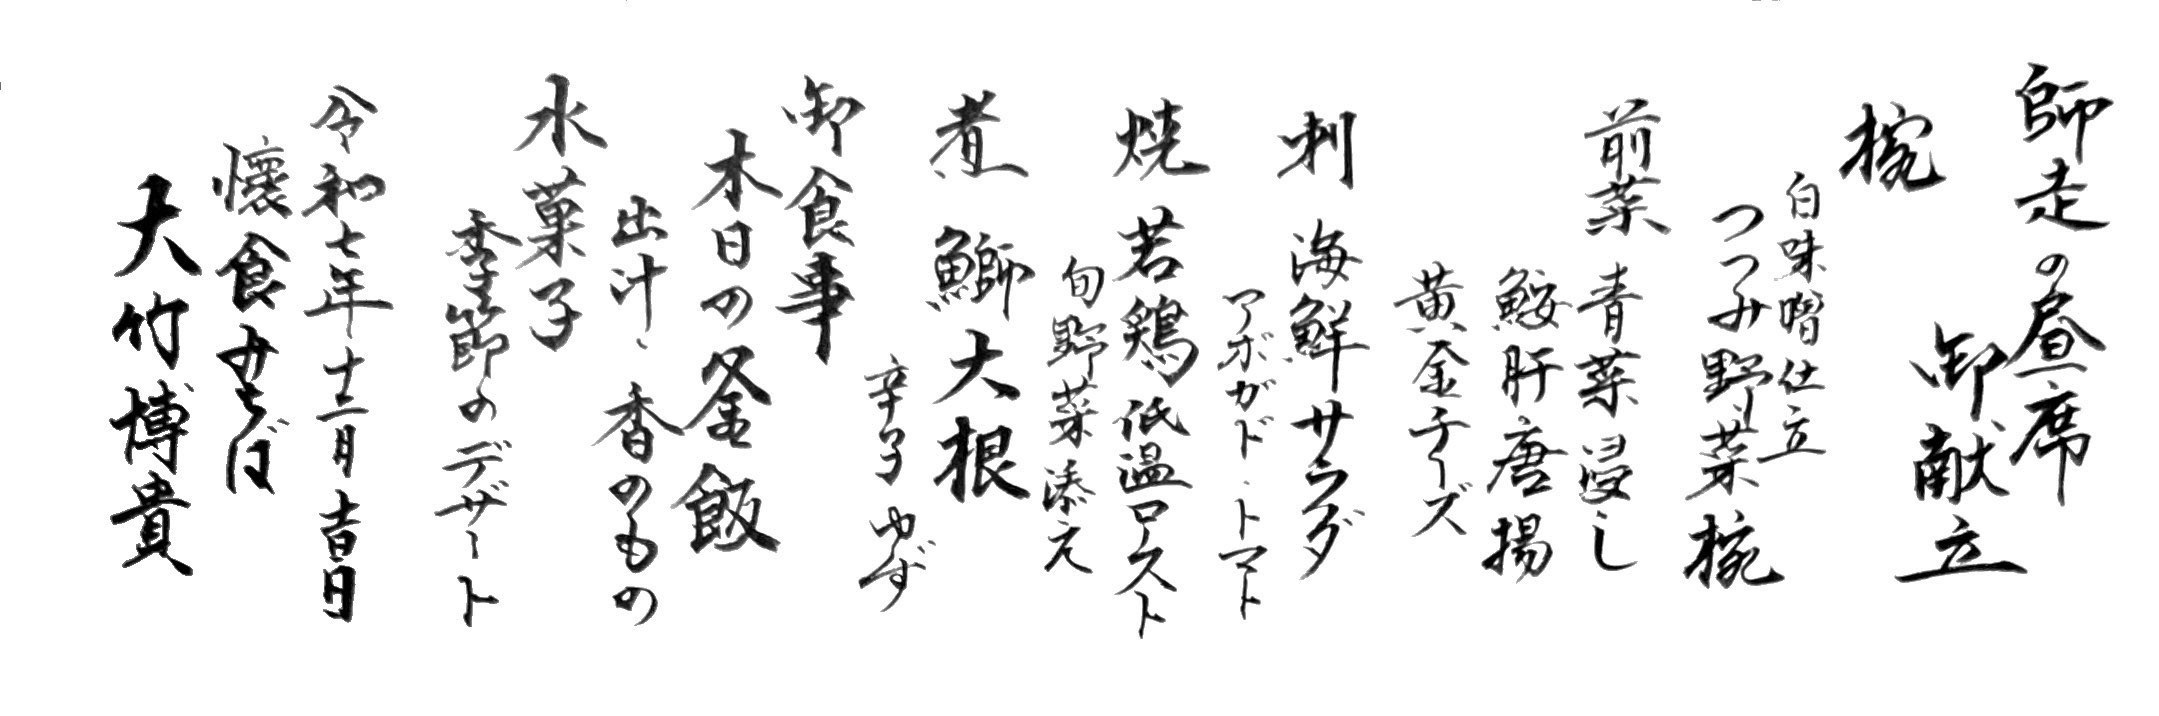 師走の昼席
御献立
椀
白味噌仕立
つつみ野菜椀
前菜 青菜浸し
鮟肝唐揚
黄金チーズ
刺 海鮮サラダ
アボガド・トマト
焼 若鶏低温ロースト
旬野菜添え
煮 鰤大根
辛子 ゆず
御食事
本日の釜飯
出汁、香のもの
水菓子
季節のデザート
令和七年十二月吉日
懐食みちば
大竹博貴